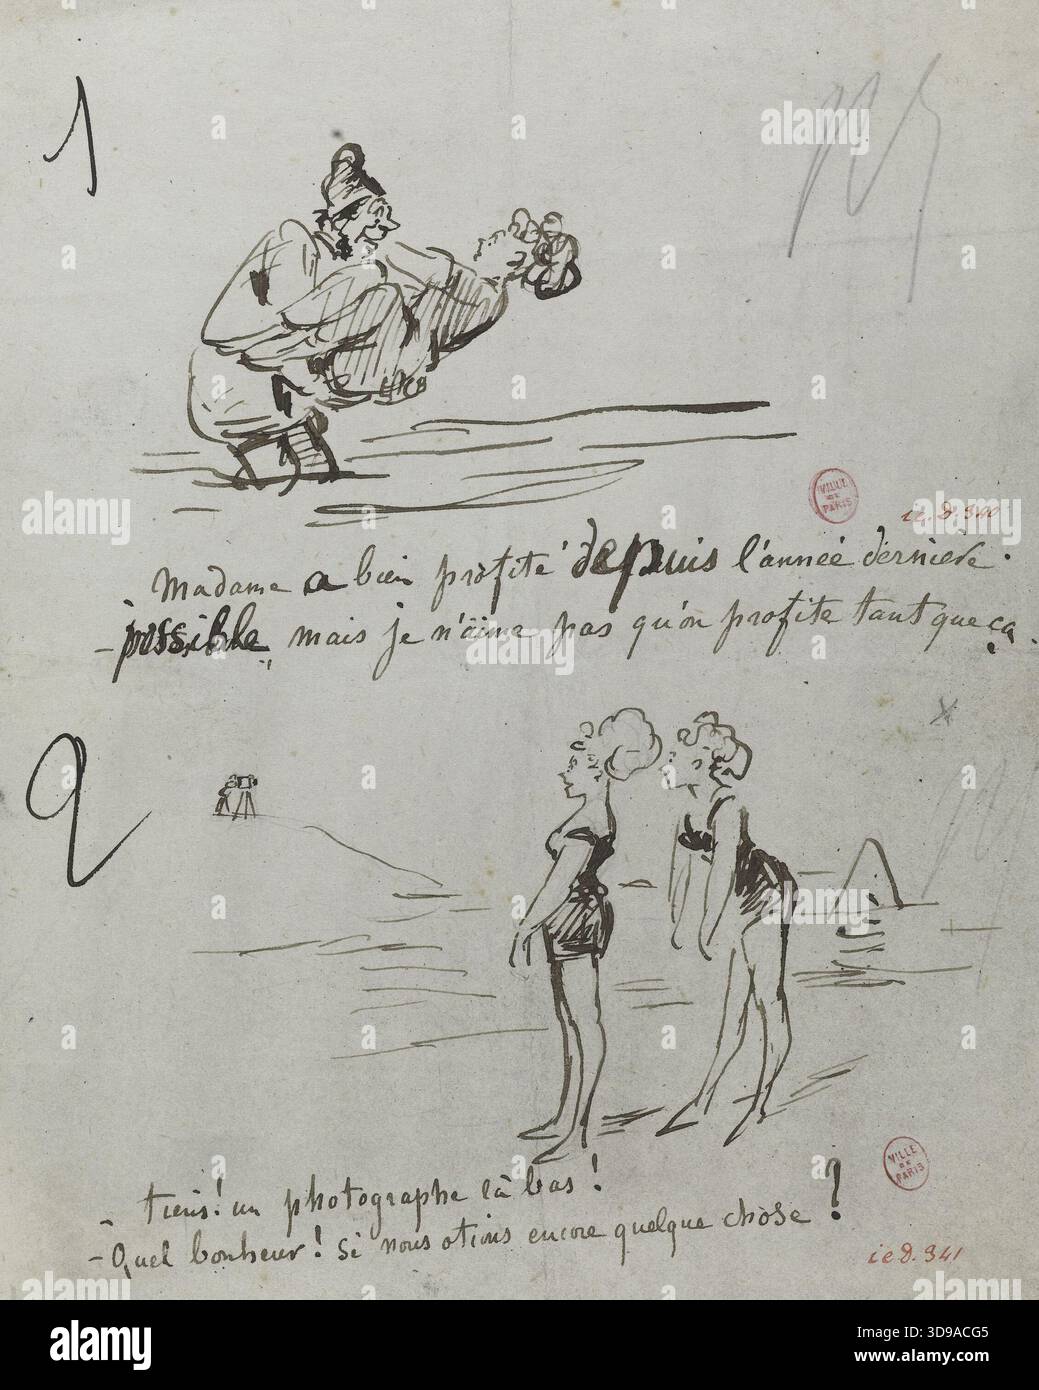 1
VILLE DE PARIS
ic.d.340
Madame a bien profité depuis l'année dernière.
- possible, mais je n'aime pas qu'on profite tant que ça.
2
VILLE DE PARIS
- tiens! un photographe là bas!
- Quel bonheur! si nous otions encore quelque chose?
ic d. 341
alamy
Image ID: 3D9ACG5
www.alamy.com